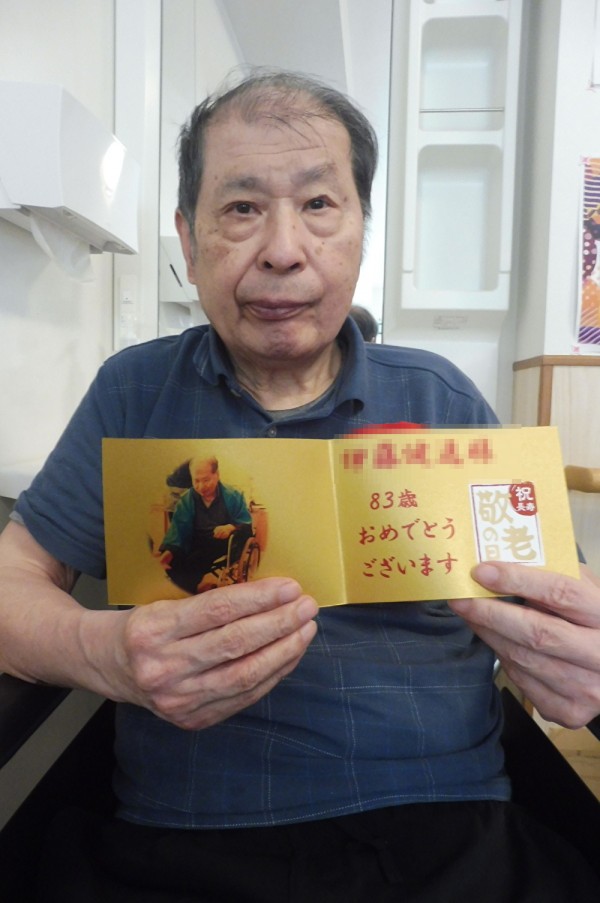 83歳
おめでとう
ございます
祝
長寿
敬老の日